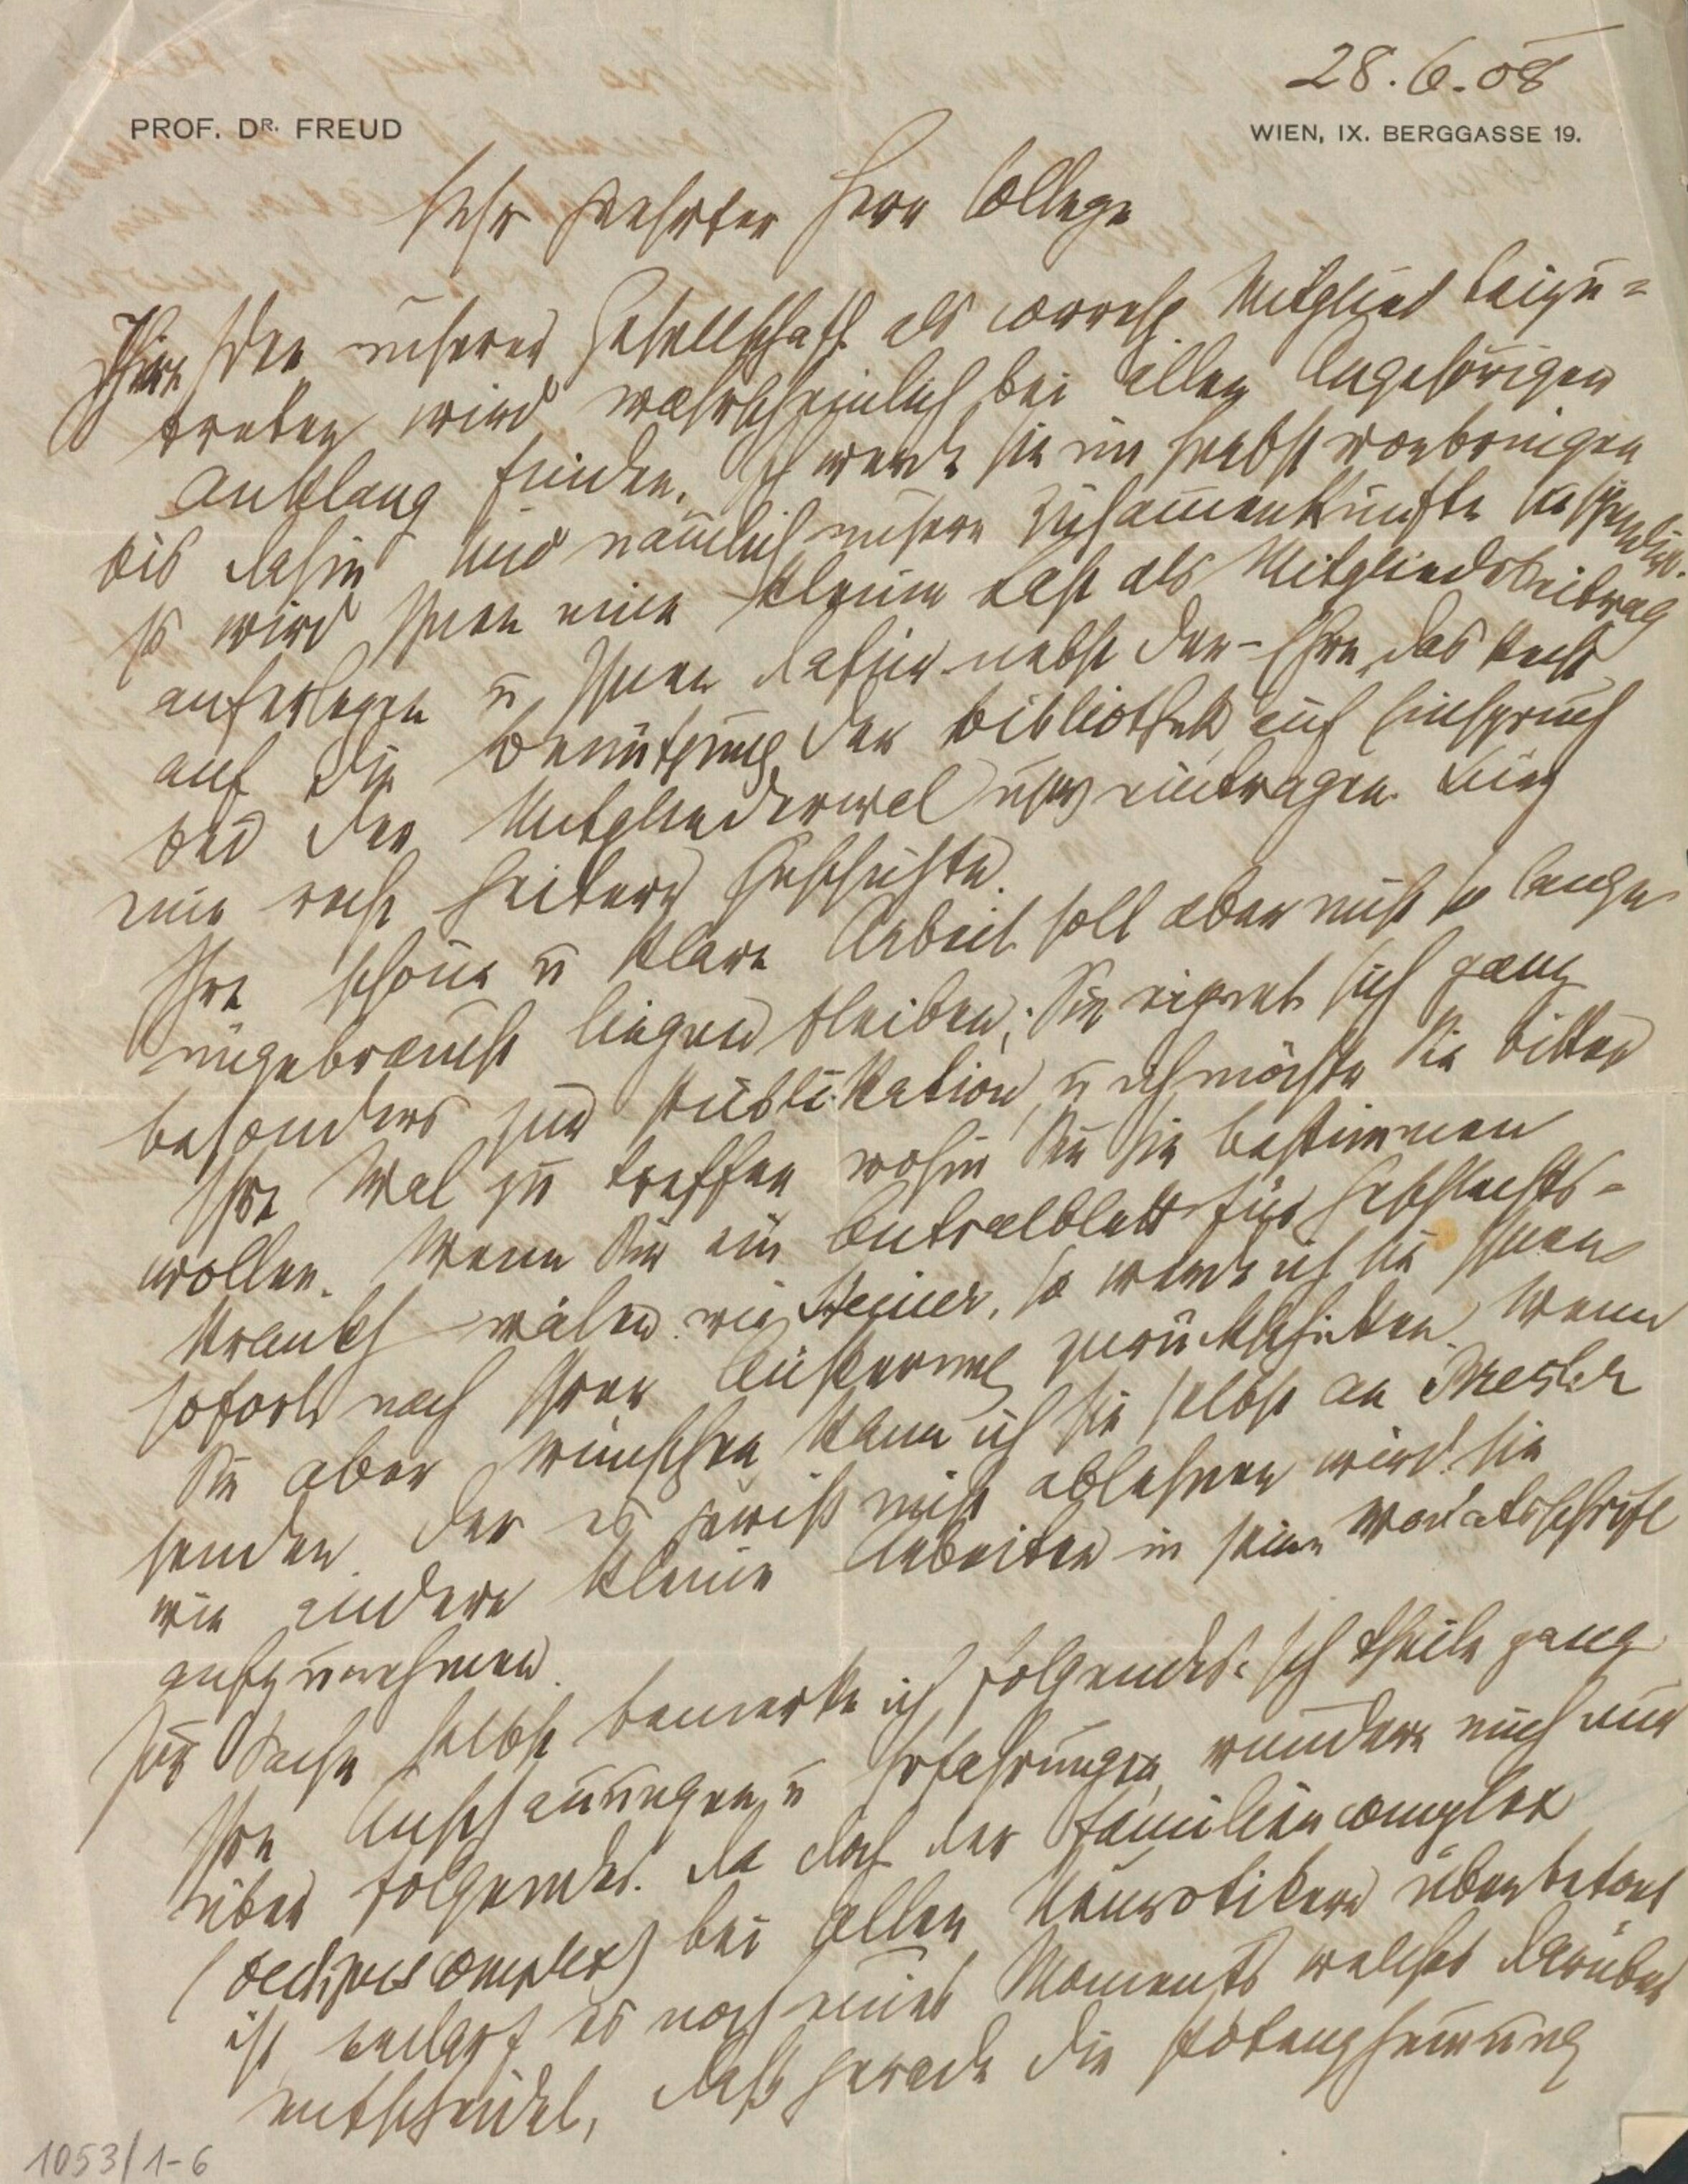 28.6.08
PROF. DR. FREUD
WIEN, IX. BERGGASSE 19.
Sehr geehrter Herr College
Ihre Idee unserer Gesellschaft als corresp Mitglied beizu=
treten wird wahrscheinlich bei allen Angehörigen
Anklang finden. Ich werde sie im Herbst vorbringen
bis dahin sind nämlich unsere Zusammenkünfte
Es wird Ihnen eine kleine Last als Mitgliedsbeitrag
auferlegen u Ihnen dafür nebst der Ehre das Recht
auf die Benützung der Bibliothek auf Einspruch
bei der Mitgliederwal usw eintragen.
eine recht heitere Geschichte.
Ihre schöne u klare Arbeit soll aber nicht so lange
ungebraucht liegen bleiben; Sie eignet sich ganz
besonders zur Publikation u ich möchte Sie bitten
Ihre Wal zu treffen wohin Sie sie bestimmen
wollen. Wenn Sie ein Centralblatt für Geschlechts=
krankh wälen wie Steiner, so werde ich sie Ihnen
sofort nach Ihrer Äußerung zurückschicken. Wenn
Sie aber wünschen kann ich sie selbst an
senden der es gewiß nicht ablehnen wird sie
wie andere kleine Arbeiten in seine Monatsschrift
aufzunehmen.
Zur Sache selbst bemerke ich folgendes: Ich theile ganz
Ihre Anschauungen u Erfahrungen, wundere mich nur
über folgendes. Da doch der Familiencomplex
(Oedipuscomplex) bei allen Neurotikern überbetont
ist bedarf es noch eines Moments welches darüber
entscheidet, daß gerade die Potenzhemmung
1053/1-6